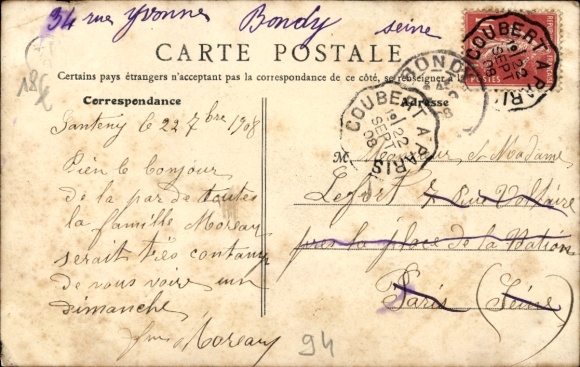 34 rue Yvonne Bondy seine
CARTE POSTALE
Certains pays étrangers n'acceptant pas la correspondance de ce côté, se renseigner à la
Correspondance
Adresse
18€
Santeny le 22 7bre 1908
Bien le bonjour
de la par de toutes
la famille Moreau
serait très contant
de vous voire un
dimanche
Moreau
M. Monsieur et Madame
Lefort 7 Rue Voltaire
près la place de la Nation
Paris (Seine)
94
COUBERT A PARIS
1º 22
SEPT
08
COUBERT A PARIS
1º 22
SEPT
08
BONDY
POSTES